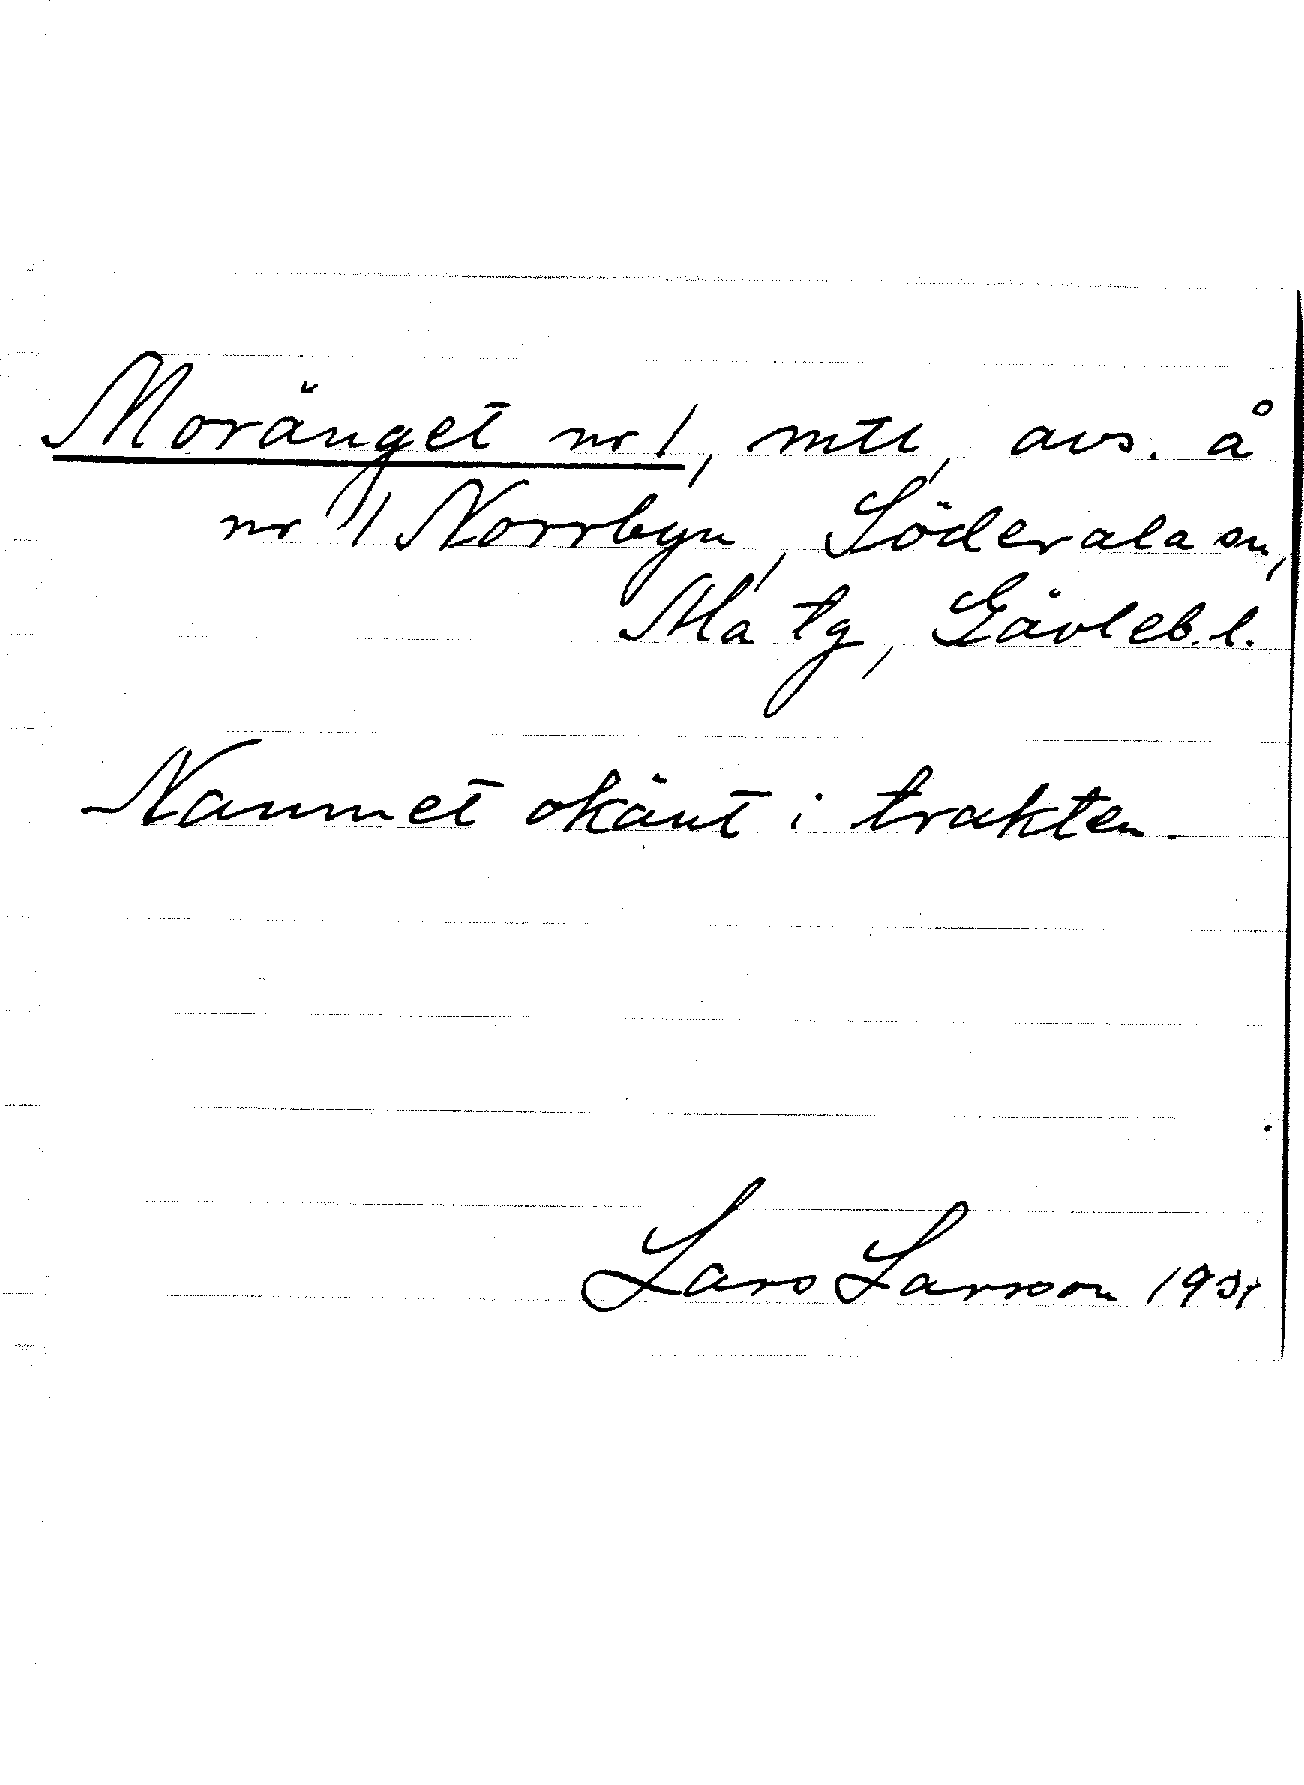 Moränget nr 1, mtl, avs. å
nr 1 Norrbyn, Söderala sn,
Ala tg, Gävleb. l.
Namnet okänt i trakten.
Lars Larsson 1931